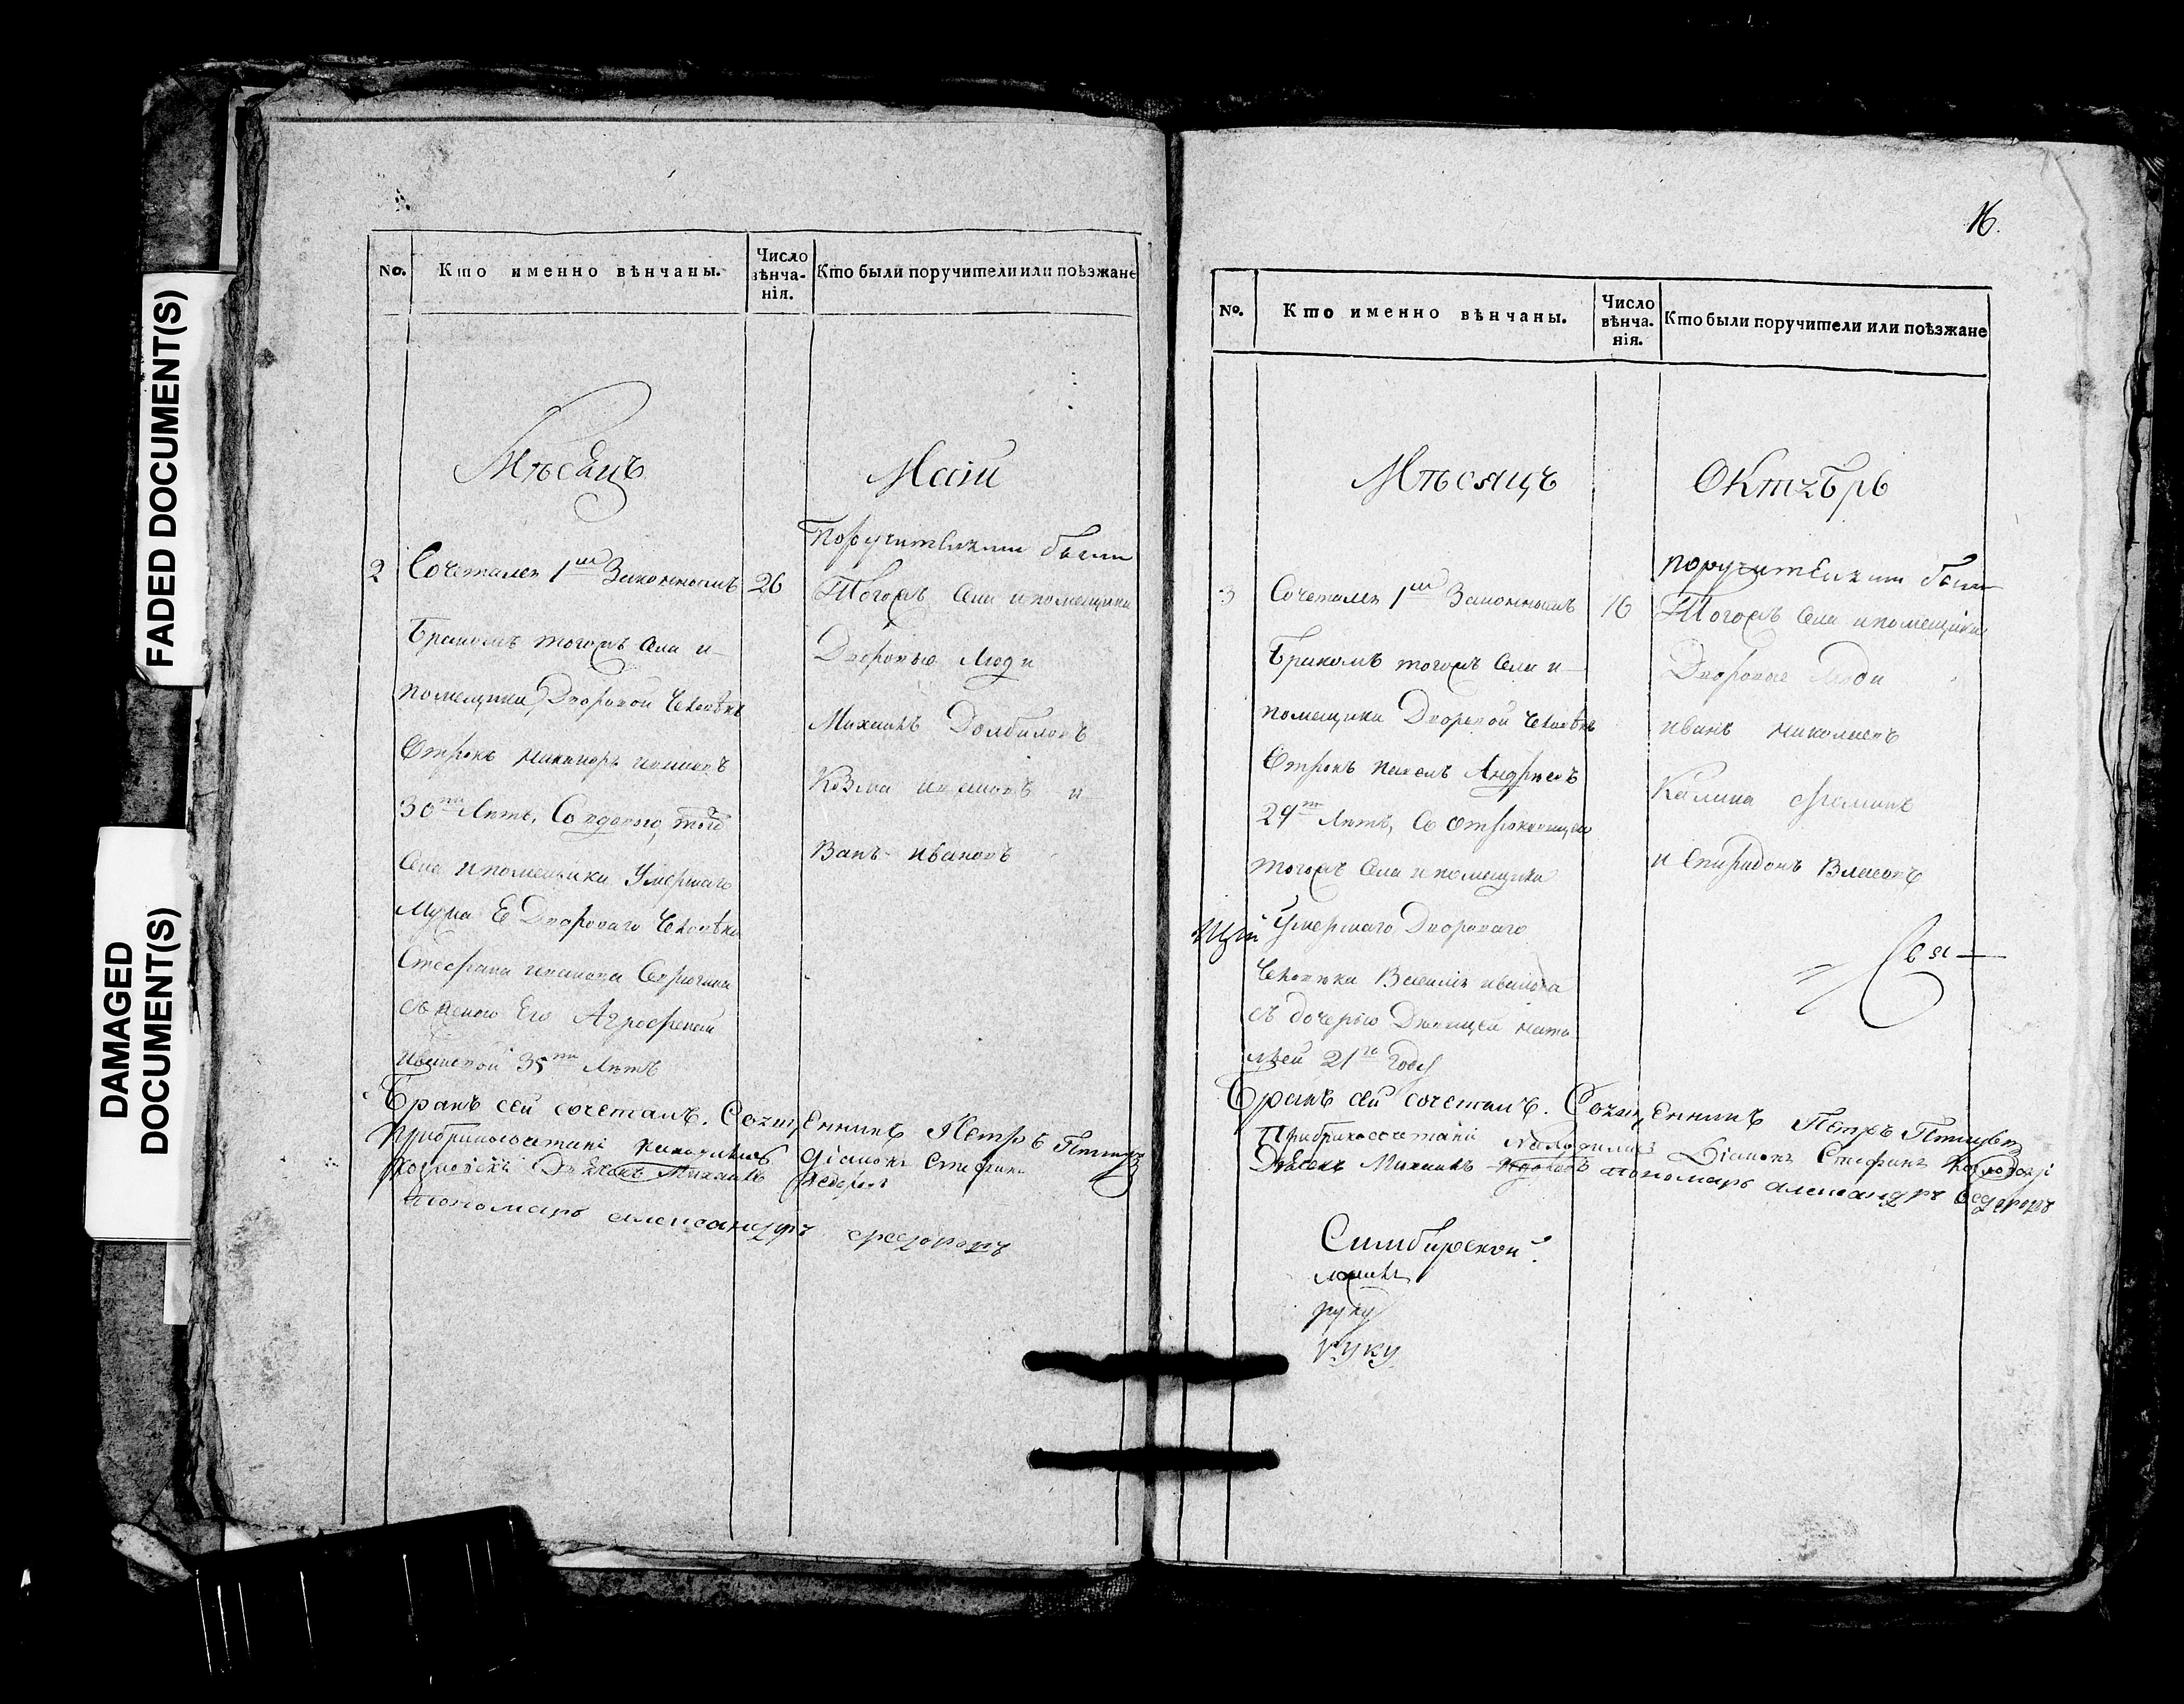 FADED DOCUMENT(S)
DAMAGED
DOCUMENT(S)
No.
Кто именно вѣнчаны.
Число
вѣнча-
нія.
Кто были поручители или поѣзжане
Мѣсецъ
Маій
2
Сочетался 1мъ Законнымъ
26
Бракомъ тогожъ Села и
помещика Дворовой Человѣкъ
Отрокъ
30ти Лѣтъ, Со вдовою, той
Села и помещика Умершаго
Мужа Ея Двороваго Человѣка
Стефана иванова
съ женою Его Агрофеной
ивановой 35ти Лѣтъ
Поручителями были
Тогожъ Села и помещика
Дворовые Люди
Михаилъ Долбиловъ
Козма ивановъ и
ивановъ
Бракъ сей сочеталъ. Священникъ Петръ
Прибракосочетани находились діаконъ Стефанъ
Михаилъ Федоровъ
пономарь александръ федоровъ
16.
No.
Кто именно вѣнчаны.
Число
вѣнча-
нія.
Кто были поручители или поѣзжане
Мѣсяцъ
Октябрь
3
Сочетался 1мъ Законнымъ
16
Бракомъ тогожъ Села и
помещика Дворовой Человѣкъ
Отрокъ павелъ Андреевъ
Лѣтъ, Со отроковицею
тогожъ Села и помещика
Умершаго Двороваго
Человѣка Василія иванова
съ дочерью Девицей ната
льей 21го Году
поручителями были
Тогожъ Села и помещика
Дворовые Люди
иванъ николаевъ
Калина
и Спиридонъ Власовъ
Свя
Бракъ сей сочеталъ. Священникъ Петръ
Прибракосочетани находились Діаконъ Стефанъ
Михаилъ пономарь александръ Федоровъ
Симбирской
руку
руку